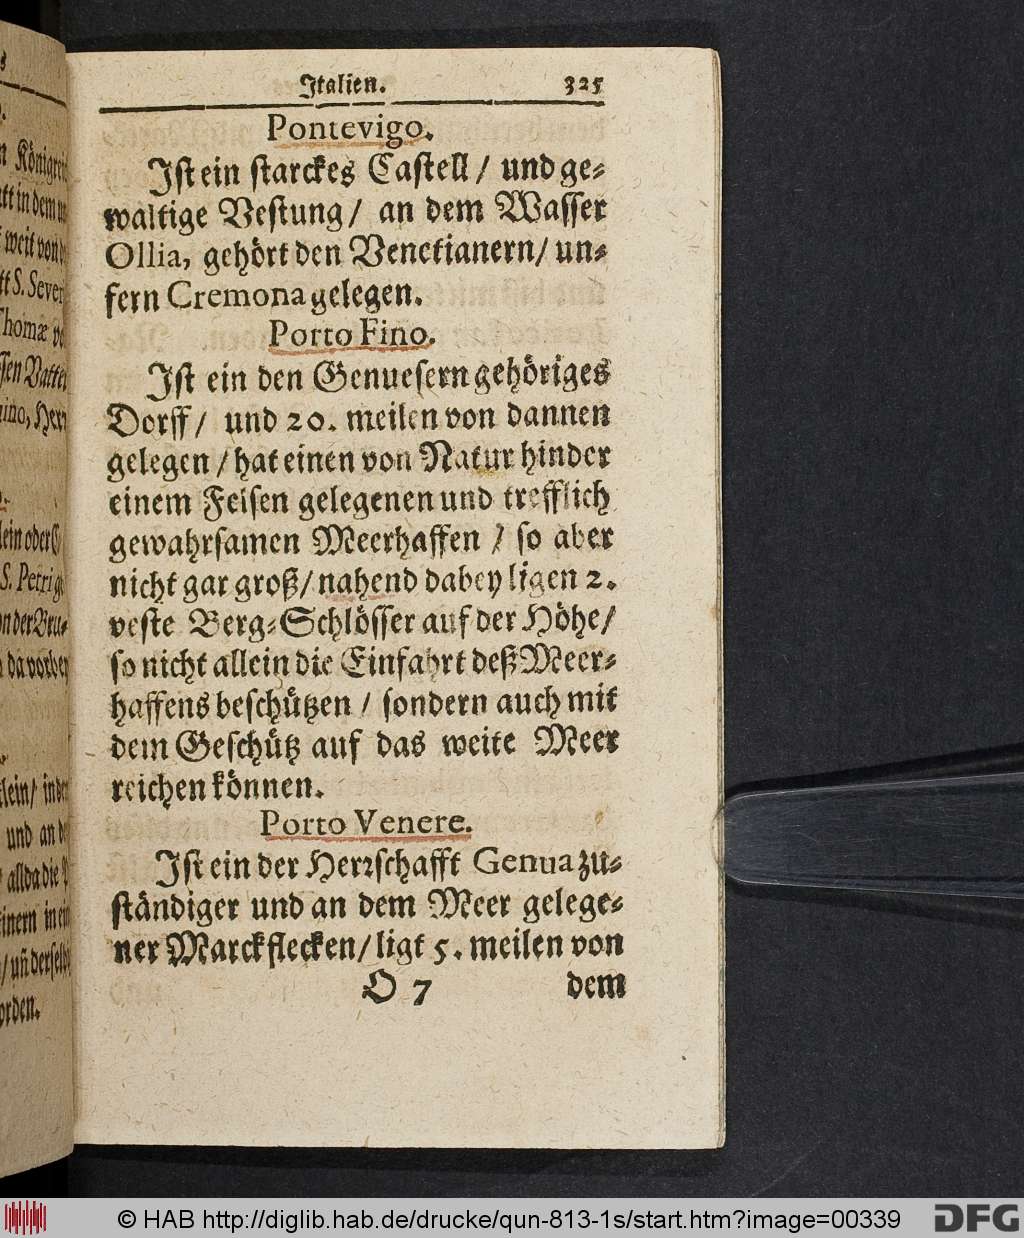 Italien. 325
Pontevigo.
Ist ein starckes Castell / und ge-
waltige Vestung / an dem Wasser
Ollia, gehört den Venetianern / un-
fern Cremona gelegen.
Porto Fino.
Ist ein den Genuesern gehöriges
Dorff / und 20. meilen von dannen
gelegen / hat einen von Natur hinder
einem Felsen gelegenen und trefflich
gewahrsamen Meerhaffen / so aber
nicht gar groß / nahend dabey ligen 2.
veste Berg-Schlösser auf der Höhe /
so nicht allein die Einfahrt deß Meer-
haffens beschützen / sondern auch mit
dem Geschütz auf das weite Meer
reichen können.
Porto Venere.
Ist ein der Herrschafft Genua zu-
ständiger und an dem Meer gelege-
ner Marckflecken / ligt 5. meilen von
O 7 dem
© HAB http://diglib.hab.de/drucke/qun-813-1s/start.htm?image=00339
DFG